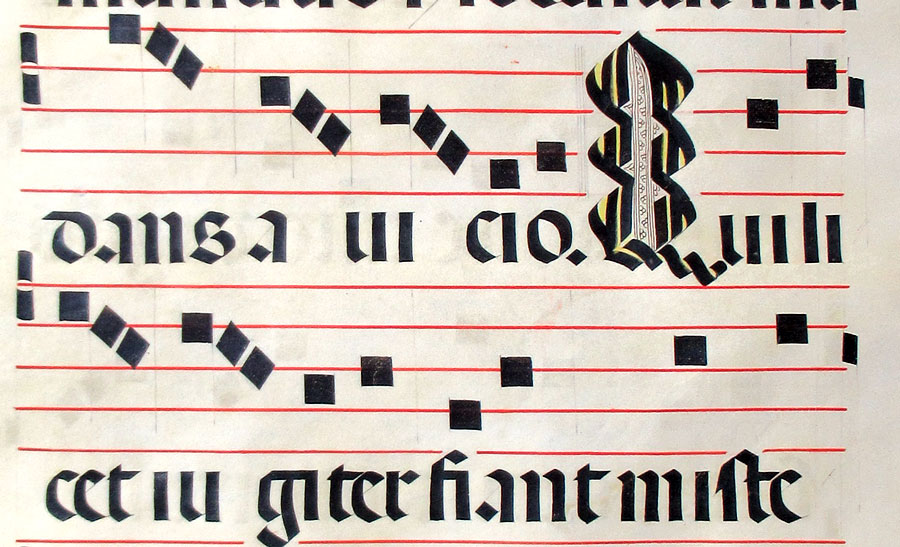 dans a ui cio. Quili
cet iu giter fiant miste